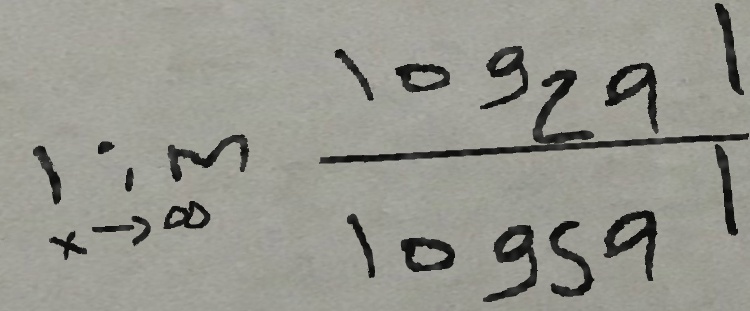 lim x→∞ log₂ 91 / log₅ 91